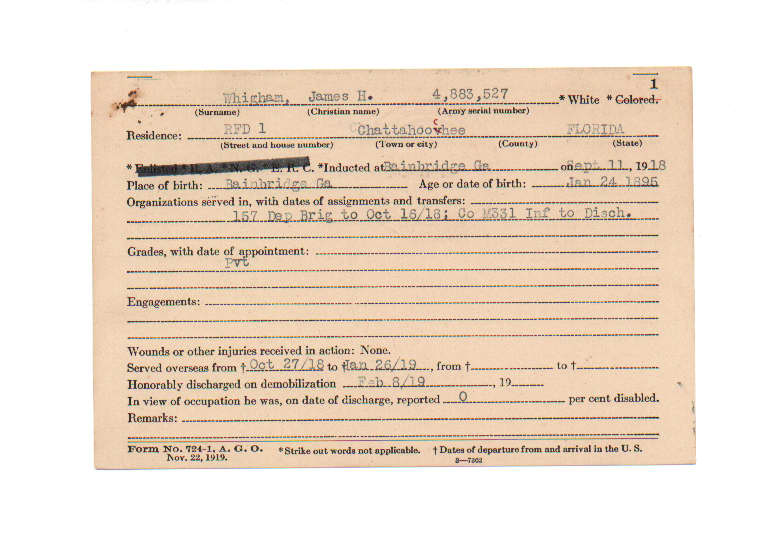 1
Whigham, James H. 4,883,527 * White * Colored.
(Surname) (Christian name) (Army serial number)
Residence: RFD 1 Chattahoochee FLORIDA
(Street and house number) (Town or city) (County) (State)
* Enlisted * R. A. * N. G. * E. R. C. *Inducted at Bainbridge Ga on Sept 11, 1918
Place of birth: Bainbridge Ga Age or date of birth: Jan 24 1895
Organizations served in, with dates of assignments and transfers:
157 Dep Brig to Oct 16/18; Co M331 Inf to Disch.
Grades, with date of appointment:
Pvt
Engagements:
Wounds or other injuries received in action: None.
Served overseas from † Oct 27/18 to †Jan 26/19, from † to †
Honorably discharged on demobilization Feb 8/19, 19
In view of occupation he was, on date of discharge, reported 0 per cent disabled.
Remarks:
Form No. 724-1, A. G. O. *Strike out words not applicable. † Dates of departure from and arrival in the U. S.
Nov. 22, 1919. 3—7302